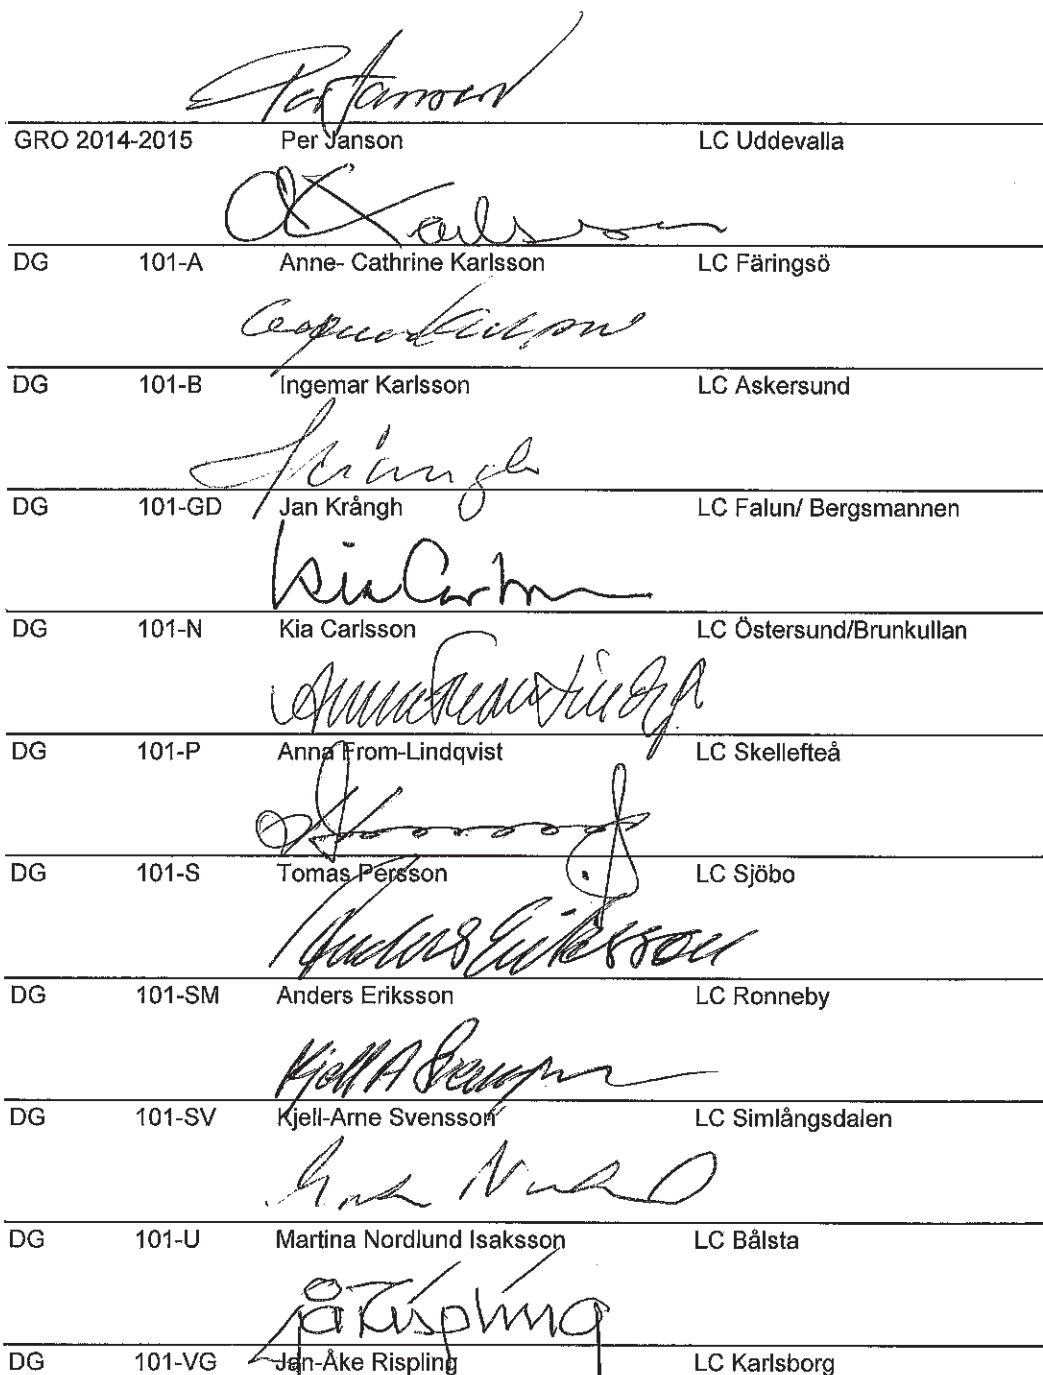 Per Janson
GRO 2014-2015 Per Janson LC Uddevalla
AC Karlsson
DG 101-A Anne- Cathrine Karlsson LC Färingsö
DG 101-B Ingemar Karlsson LC Askersund
DG 101-GD Jan Krångh LC Falun/ Bergsmannen
Kia Carlsson
DG 101-N Kia Carlsson LC Östersund/Brunkullan
DG 101-P Anna From-Lindqvist LC Skellefteå
DG 101-S Tomas Persson LC Sjöbo
Anders Eriksson
DG 101-SM Anders Eriksson LC Ronneby
Kjell A Svensson
DG 101-SV Kjell-Arne Svensson LC Simlångsdalen
DG 101-U Martina Nordlund Isaksson LC Bålsta
JÅ Rispling
DG 101-VG Jan-Åke Rispling LC Karlsborg